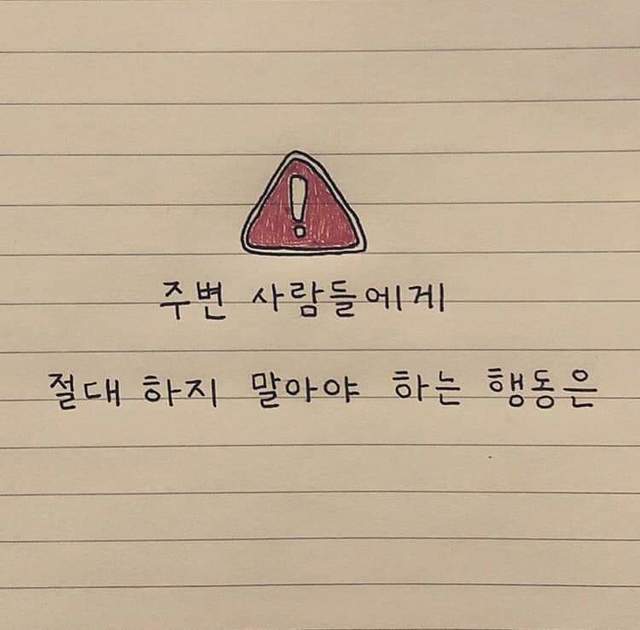 주변 사람들에게
절대 하지 말아야 하는 행동은